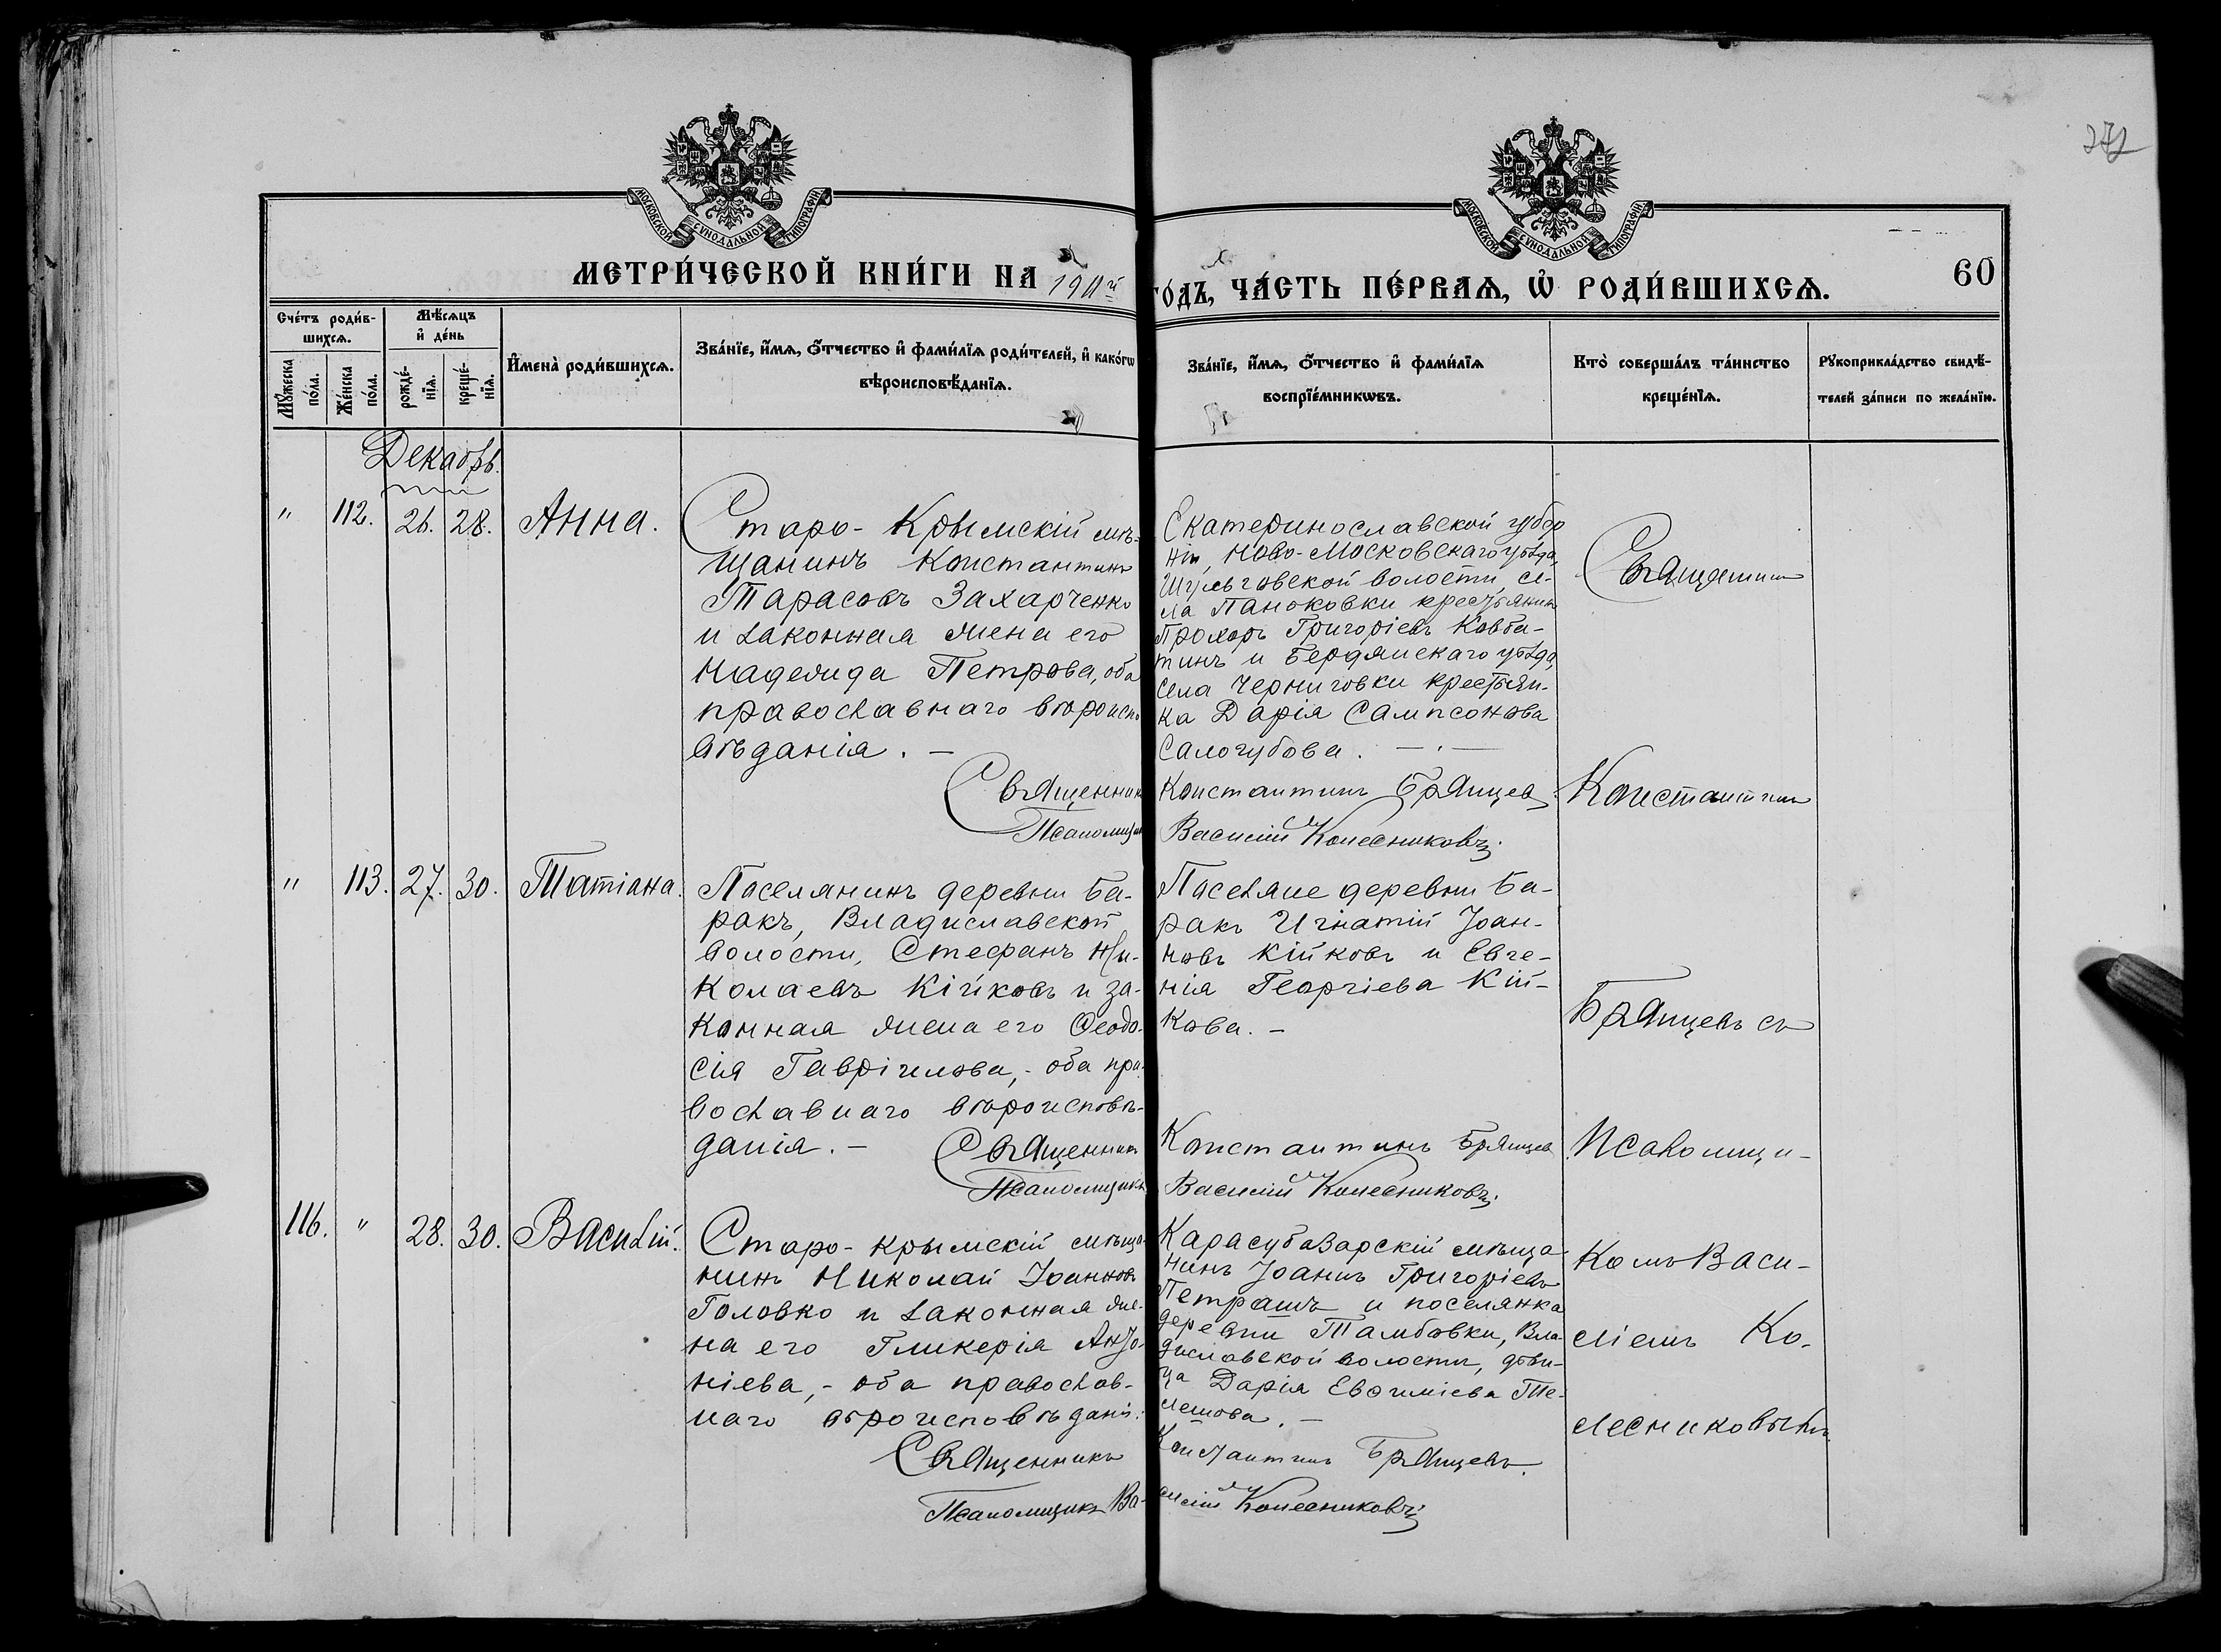 272
МОСКОВСКОЙ СѴНОДАЛЬНОЙ ТИПОГРАФІИ
МОСКОВСКОЙ СѴНОДАЛЬНОЙ ТИПОГРАФІИ
МЕТРИ́ЧЕСКОЙ КНИ́ГИ НА 1911й
ГО́ДЪ, ЧА́СТЬ ПЕ́РВАѦ, Ѡ҆ РОДИ́ВШИХСѦ.
60
Сче́тъ роди́в-
шихсѧ.
Мѣ́сѧцъ
и҆ де́нь
Мꙋ́жеска
по́ла.
Же́нска
по́ла.
рожде́-
нїѧ.
креще́-
нїѧ.
И҆мена̀ роди́вшихсѧ.
Зва́нїе, и҆́мѧ, ѻ҆́тчество и҆ фами́лїѧ роди́телей, и҆ како́гѡ
вѣроисповѣ́данїѧ.
Зва́нїе, и҆́мѧ, ѻ҆́тчество и҆ фами́лїѧ
воспрїе́мникѡвъ.
Кто̀ соверша́лъ та́инство
креще́нїѧ.
Рꙋкоприкла́дство свидѣ́-
телей за́писи по жела́нїю.
Декабрь.
" 112. 26. 28. Анна.
Старо-Крымскій мѣ-
щанинъ Константинъ
Тарасовъ Захарченко
и законная жена его
Надежда Петрова, оба
православнаго вѣроиспо
вѣданія. —
Священник
Псаломщик
Екатеринославской губер
ніи, Ново-Московскаго уѣзда,
Шульговской волости, се-
ла Паньковки крестьянин
Прохоръ Григоріевъ Ковба-
тинъ и Бердянскаго уѣзда,
села Черниговки крестьян-
ка Дарія Сампсонова
Салогубова. — . —
Константинъ Брянцев
Василій Колесниковъ.
Священник
Константин
" 113. 27. 30. Татіана.
Поселянинъ деревни Ба-
ракъ, Владиславской
волости, Стефанъ Ни-
колаевъ Кійковъ и за-
конная жена его Ѳеодо-
сія Гавріилова, - оба пра-
вославнаго вѣроисповѣ-
данія. —
Священник
Псаломщикъ
Поселяне деревни Ба-
ракъ Игнатій Іоан-
новъ Кійковъ и Евге-
нія Георгіева Кій-
кова. —
Константинъ Брянцев
Василій Колесниковъ.
Брянцевъ съ
Псаломщи-
116. " 28. 30. Василій.
Старо-Крымскій мѣща-
нинъ Николай Іоанновъ
Головко и законная же-
на его Гликерія Анто-
ніева, - оба православ-
наго вѣроисповѣдані.
Священникъ
Псаломщикъ Ва-
Карасубазарскій мѣща-
нинъ Іоаннъ Григоріевъ
Петрашъ и поселянка
деревни Тамбовки, Вла-
диславской волости, дѣви-
ца Дарія Евѳиміева Те-
лешова. —
Константинъ Брянцевъ.
силій Колесниковъ
комъ Васи-
ліемъ Ко-
лесниковымъ.